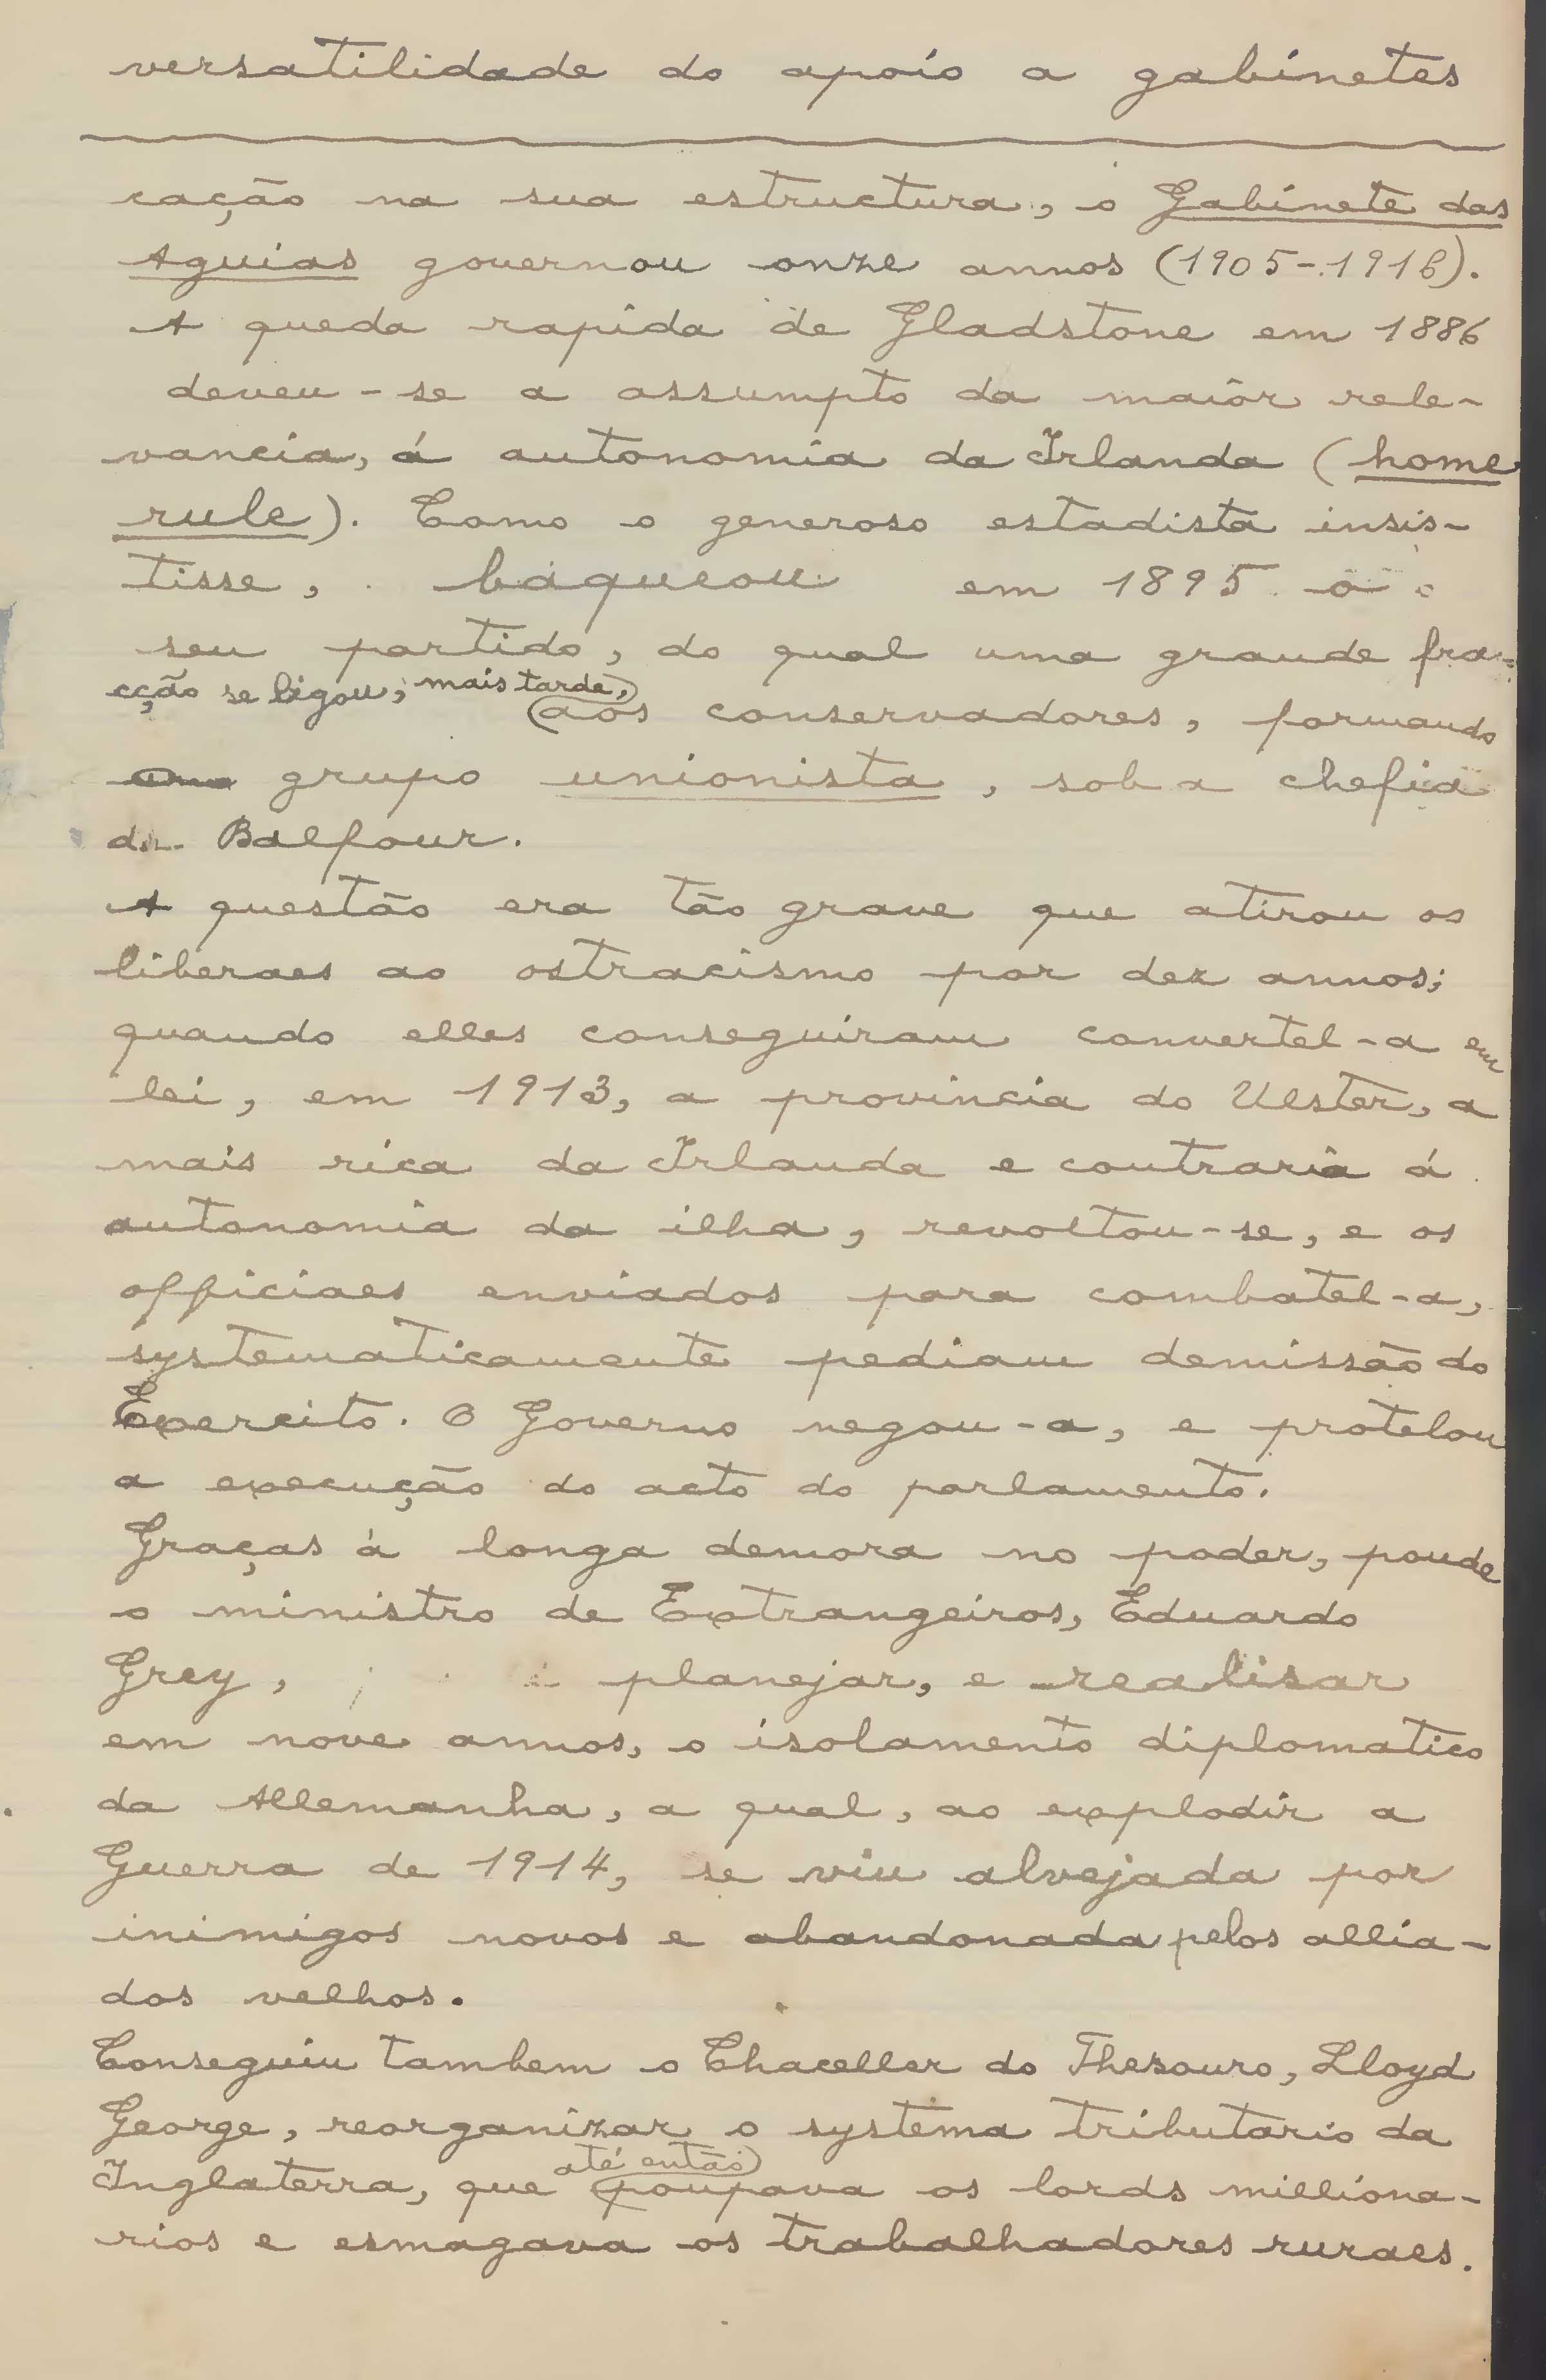 versatilidade do apoio a gabinetes
cação na sua estructura, o Gabinete das
Aguias governou onze annos (1905-1916).
A queda rapida de Gladstone em 1886
deveu-se a assumpto da maiór rele-
vancia, á autonomia da Irlanda (home
rule). Como o generoso estadista insis-
tisse, baqueou em 1895 o
seu partido, do qual uma grande fra-
cção se ligou, mais tarde,
aos conservadores, formando
grupo unionista, sob a chefia
de Balfour.
A questão era tão grave que atirou os
liberaes ao ostracismo por dez annos;
quando elles conseguiram convertel-a em
lei, em 1913, a provincia do Ulster, a
mais rica da Irlanda e contraria á
autonomia da ilha, revoltou-se, e os
officiaes enviados para combatel-a,
systematicamente pediam demissão do
Exercito. O Governo negou-a, e protelou
a execução do acto do parlamento.
Graças á longa demora no poder, poude
o ministro de Extrangeiros, Eduardo
Grey, planejar, e realisar
em nove annos, o isolamento diplomatico
da Allemanha, a qual, ao explodir a
Guerra de 1914, se viu alvejada por
inimigos novos e abandonada pelos allia-
dos velhos.
Conseguiu tambem o Chaceller do Thesouro, Lloyd
George, reorganizar o systema tributario da
até então
Inglaterra, que poupava os lords milliona-
rios e esmagava os trabalhadores ruraes.